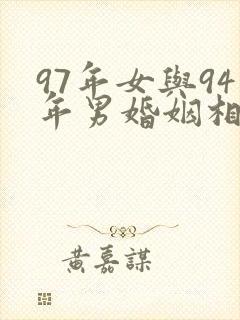 97年女與94
年男婚姻相
黃嘉謀